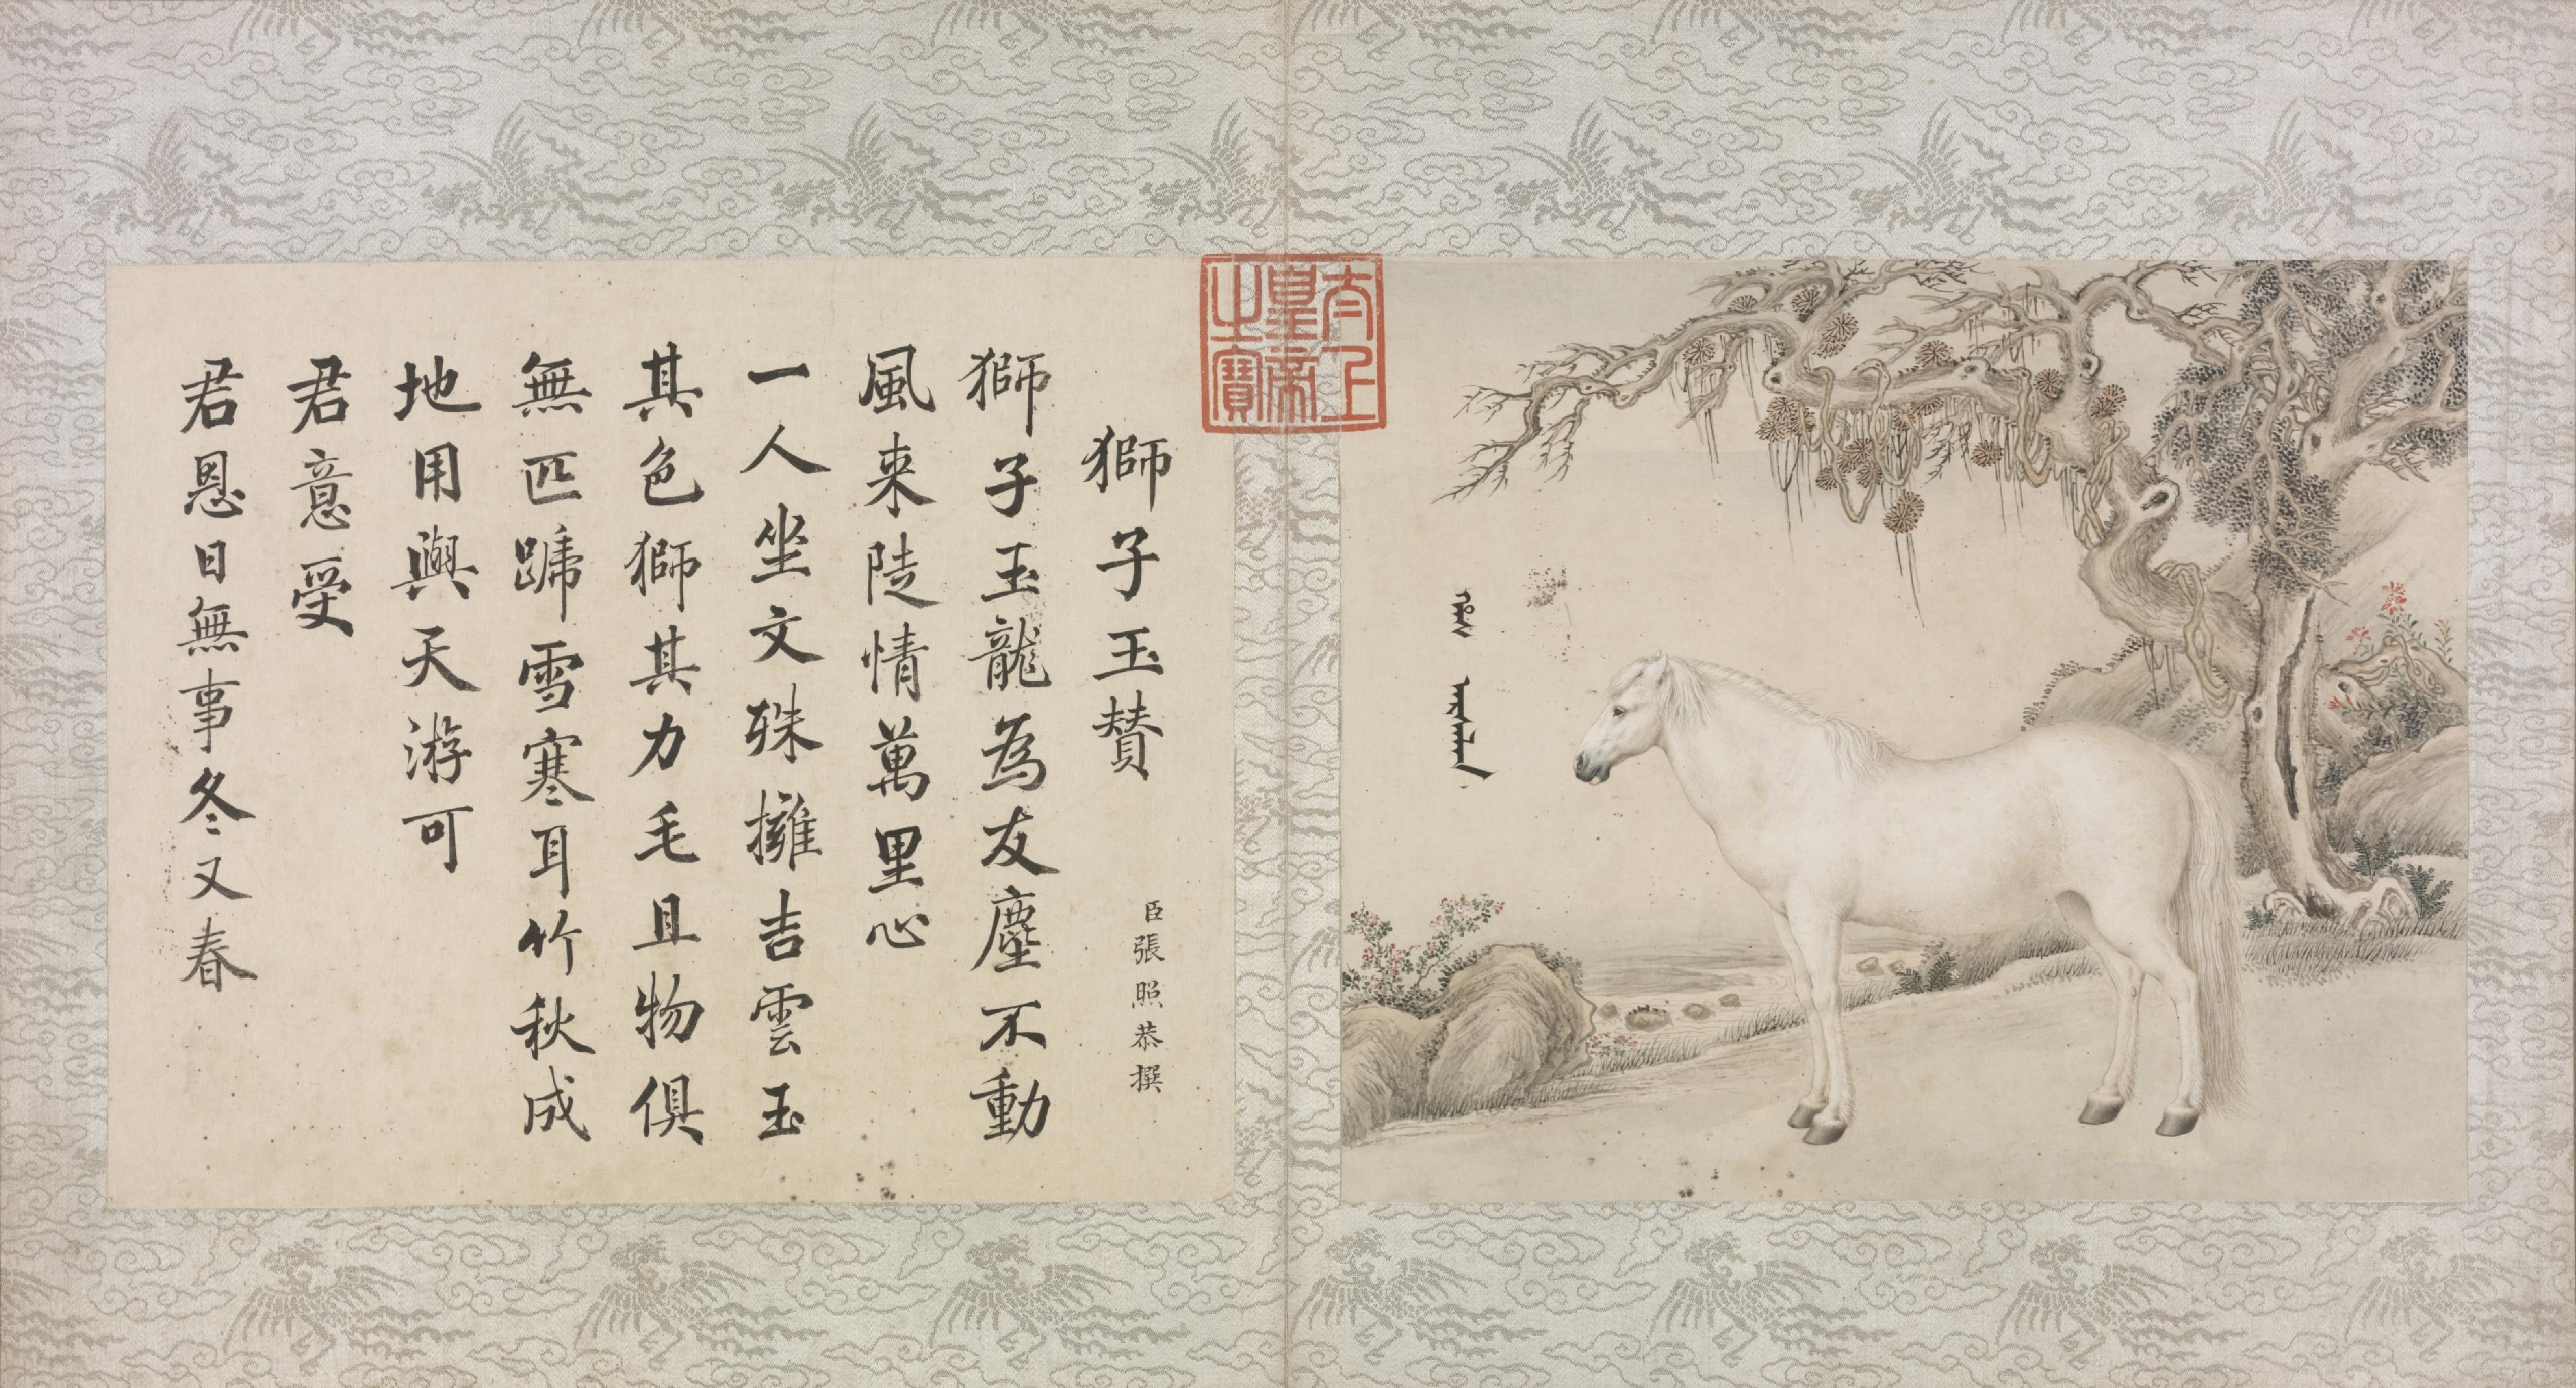 太上皇帝之寶
獅子玉賛
臣張照恭撰
獅子玉龍為友塵不動
風来陡情萬里心
一人坐文殊擁吉雲玉
其色獅其力毛且物俱
無匹蹏雪寒耳竹秋成
地用與天游可
君意受
君恩日無事冬又春